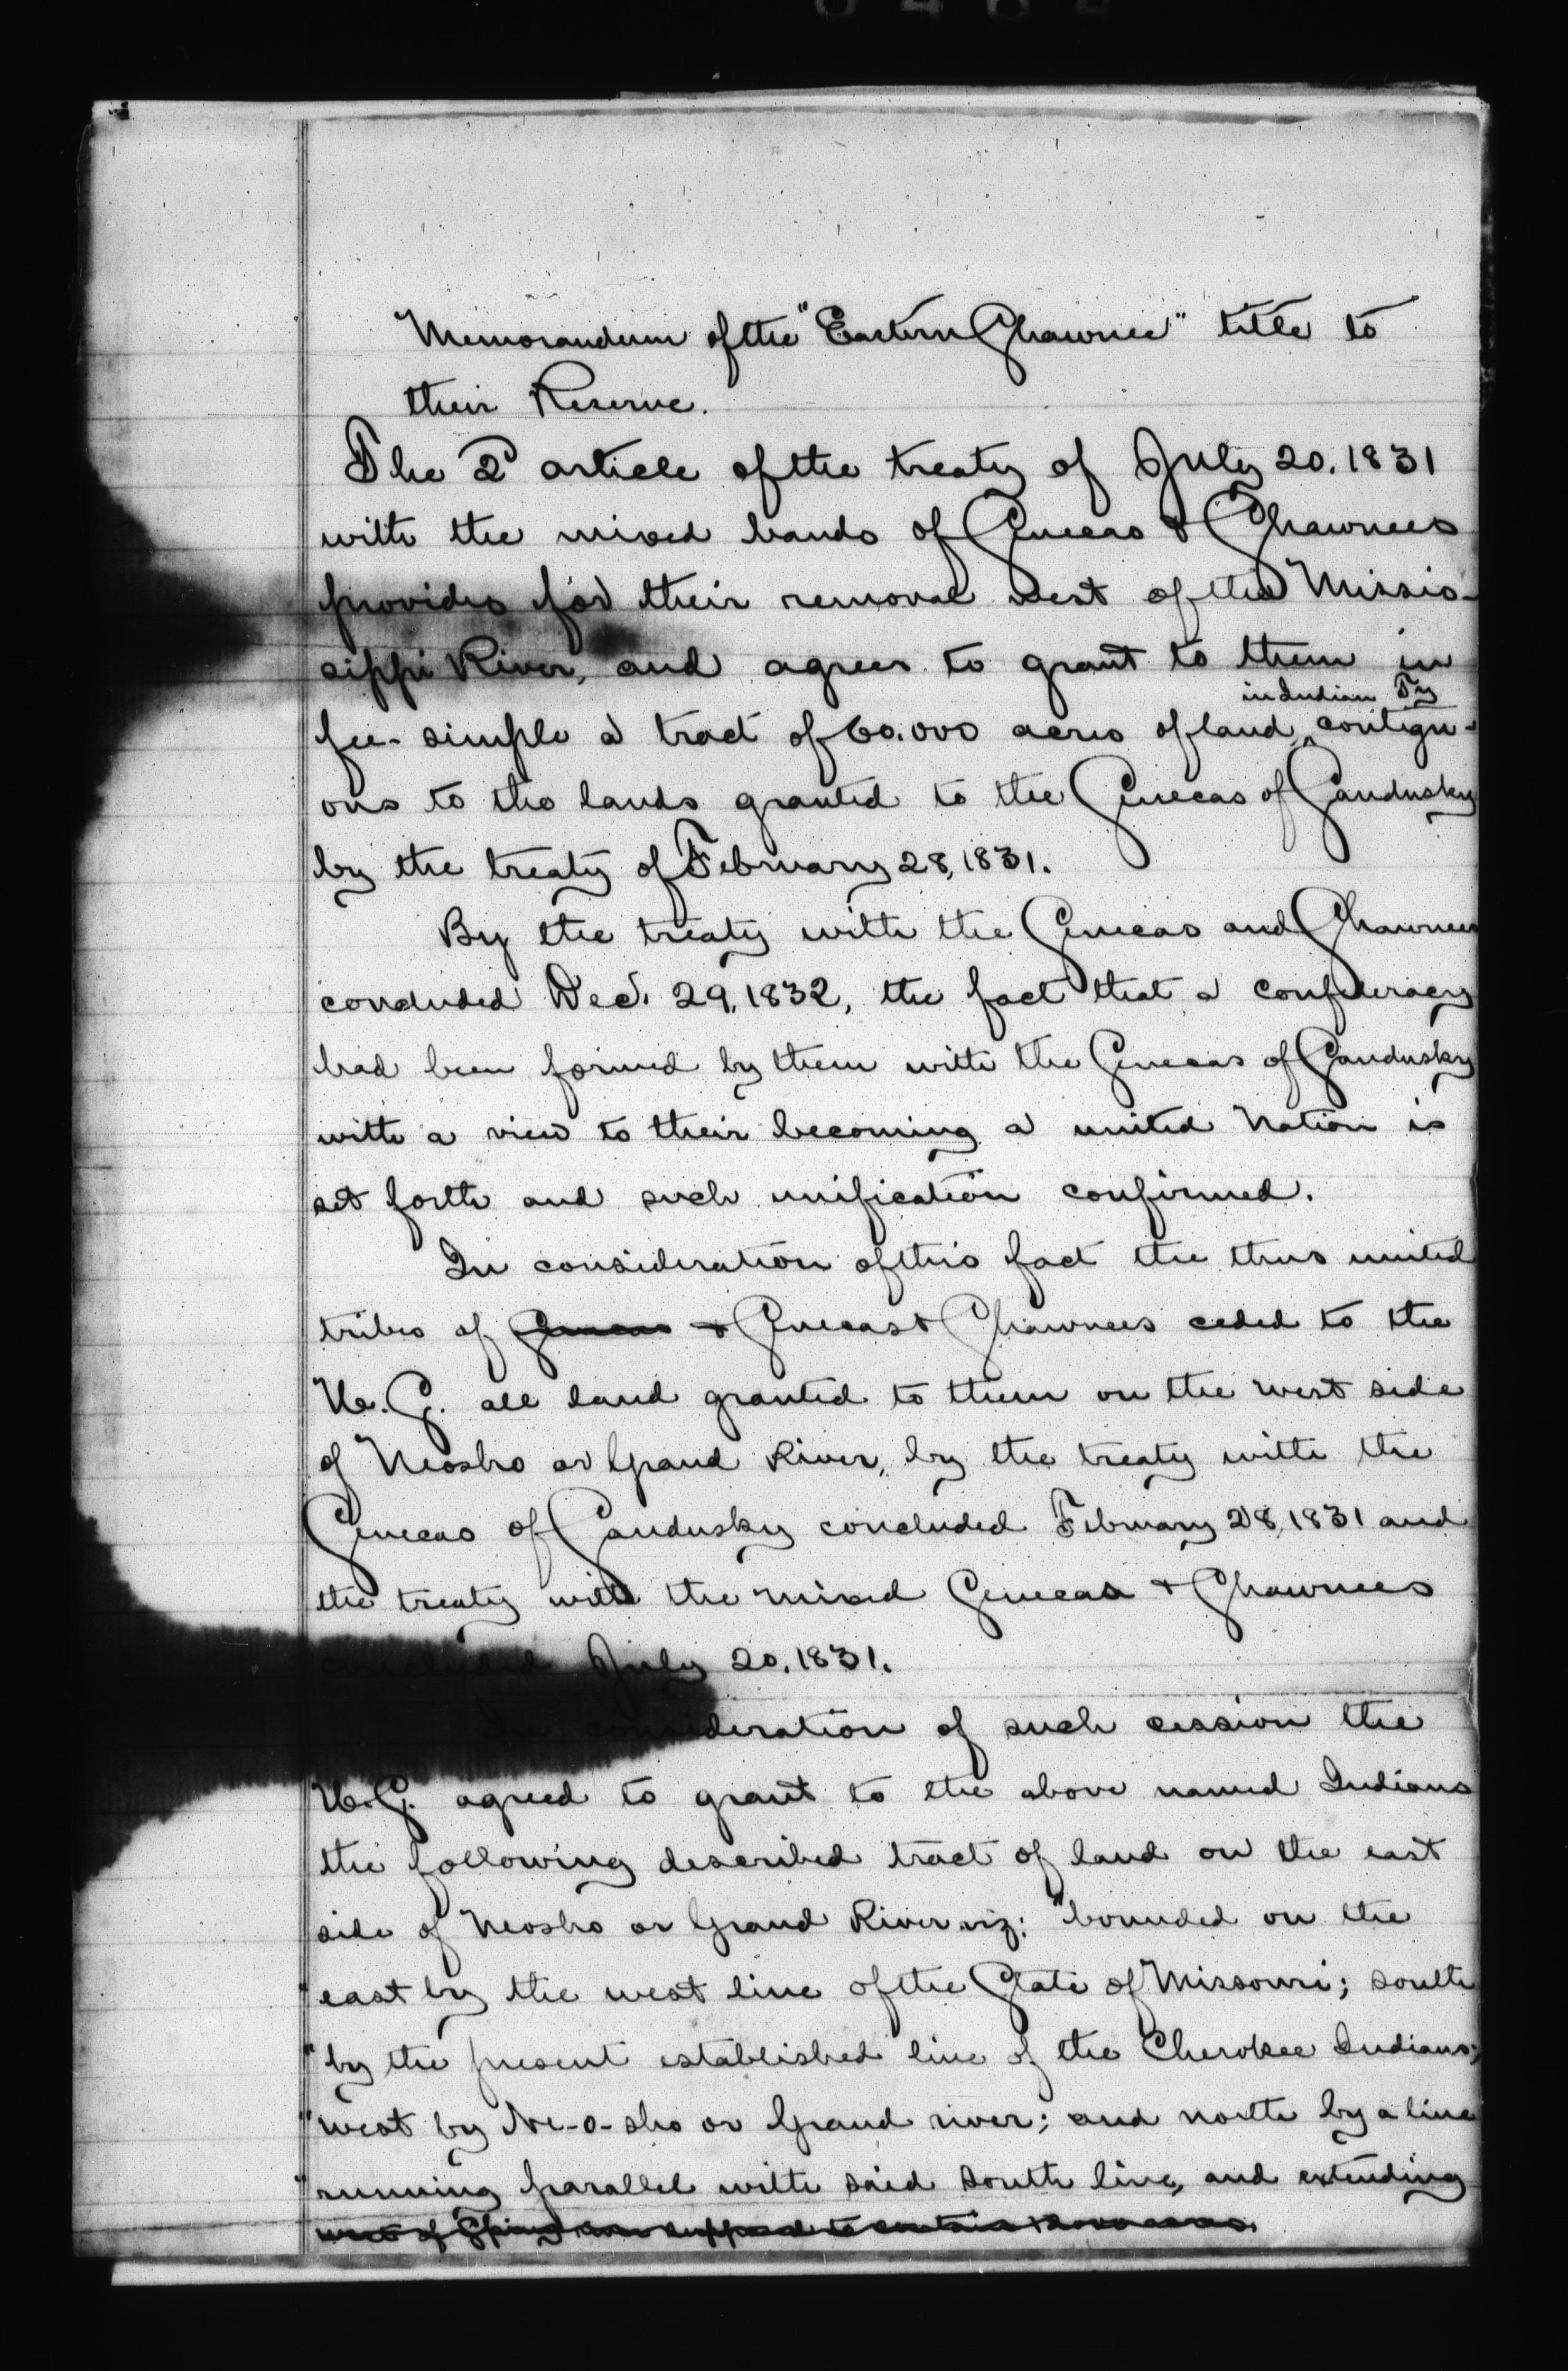 Memorandum of the "Eastern Shawnee" title to
their Reserve.
The 2d article of the treaty of July 20. 1831
with the mixed bands of Senecas & Shawnees
provides for their removal west of the Missis-
sippi River, and agrees to grant to them in
in Indian Ty
fee-simple a tract of 60.000 acres of land contigu-
ous to the lands granted to the Senecas of Sandusky
by the treaty of February 28, 1831.
By the treaty with the Senecas and Shawnees
concluded Dec. 29, 1832, the fact that a confederacy
had been formed by them with the Senecas of Sandusky
with a view to their becoming a united Nation is
set forth and such unification confirmed.
In consideration of this fact the thus united
tribes of Senecas & Senecas & Shawnees ceded to the
U.S. all land granted to them on the west side
of Neosho or Grand River, by the treaty with the
Senecas of Sandusky concluded February 28, 1831 and
the treaty with the mixed Senecas & Shawnees
concluded July 20. 1831.
In consideration of such cession the
U.S. agreed to grant to the above named Indians
the following described tract of land on the east
side of Neosho or Grand River viz: "bounded on the
"east by the west line of the State of Missouri; south
"by the present established line of the Cherokee Indians;
"west by Ne-o-sho or Grand river; and north by a line
"running parallel with said south line, and extending
west of Spring supposed to contain acres.